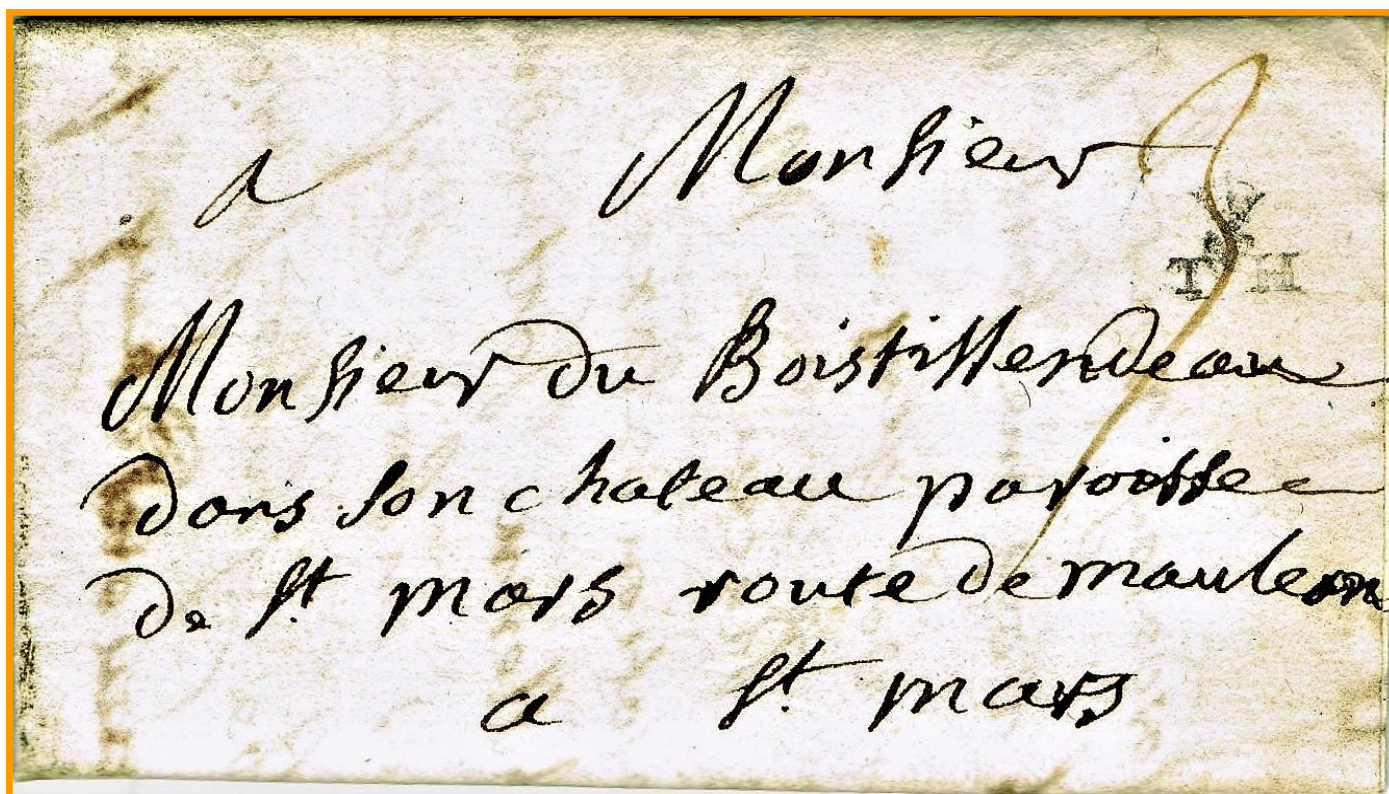 a Monsieur
T H
Monsieur du Boistissendeau
dans son chateau paroisse
de St mars route de mauleon
a St mars